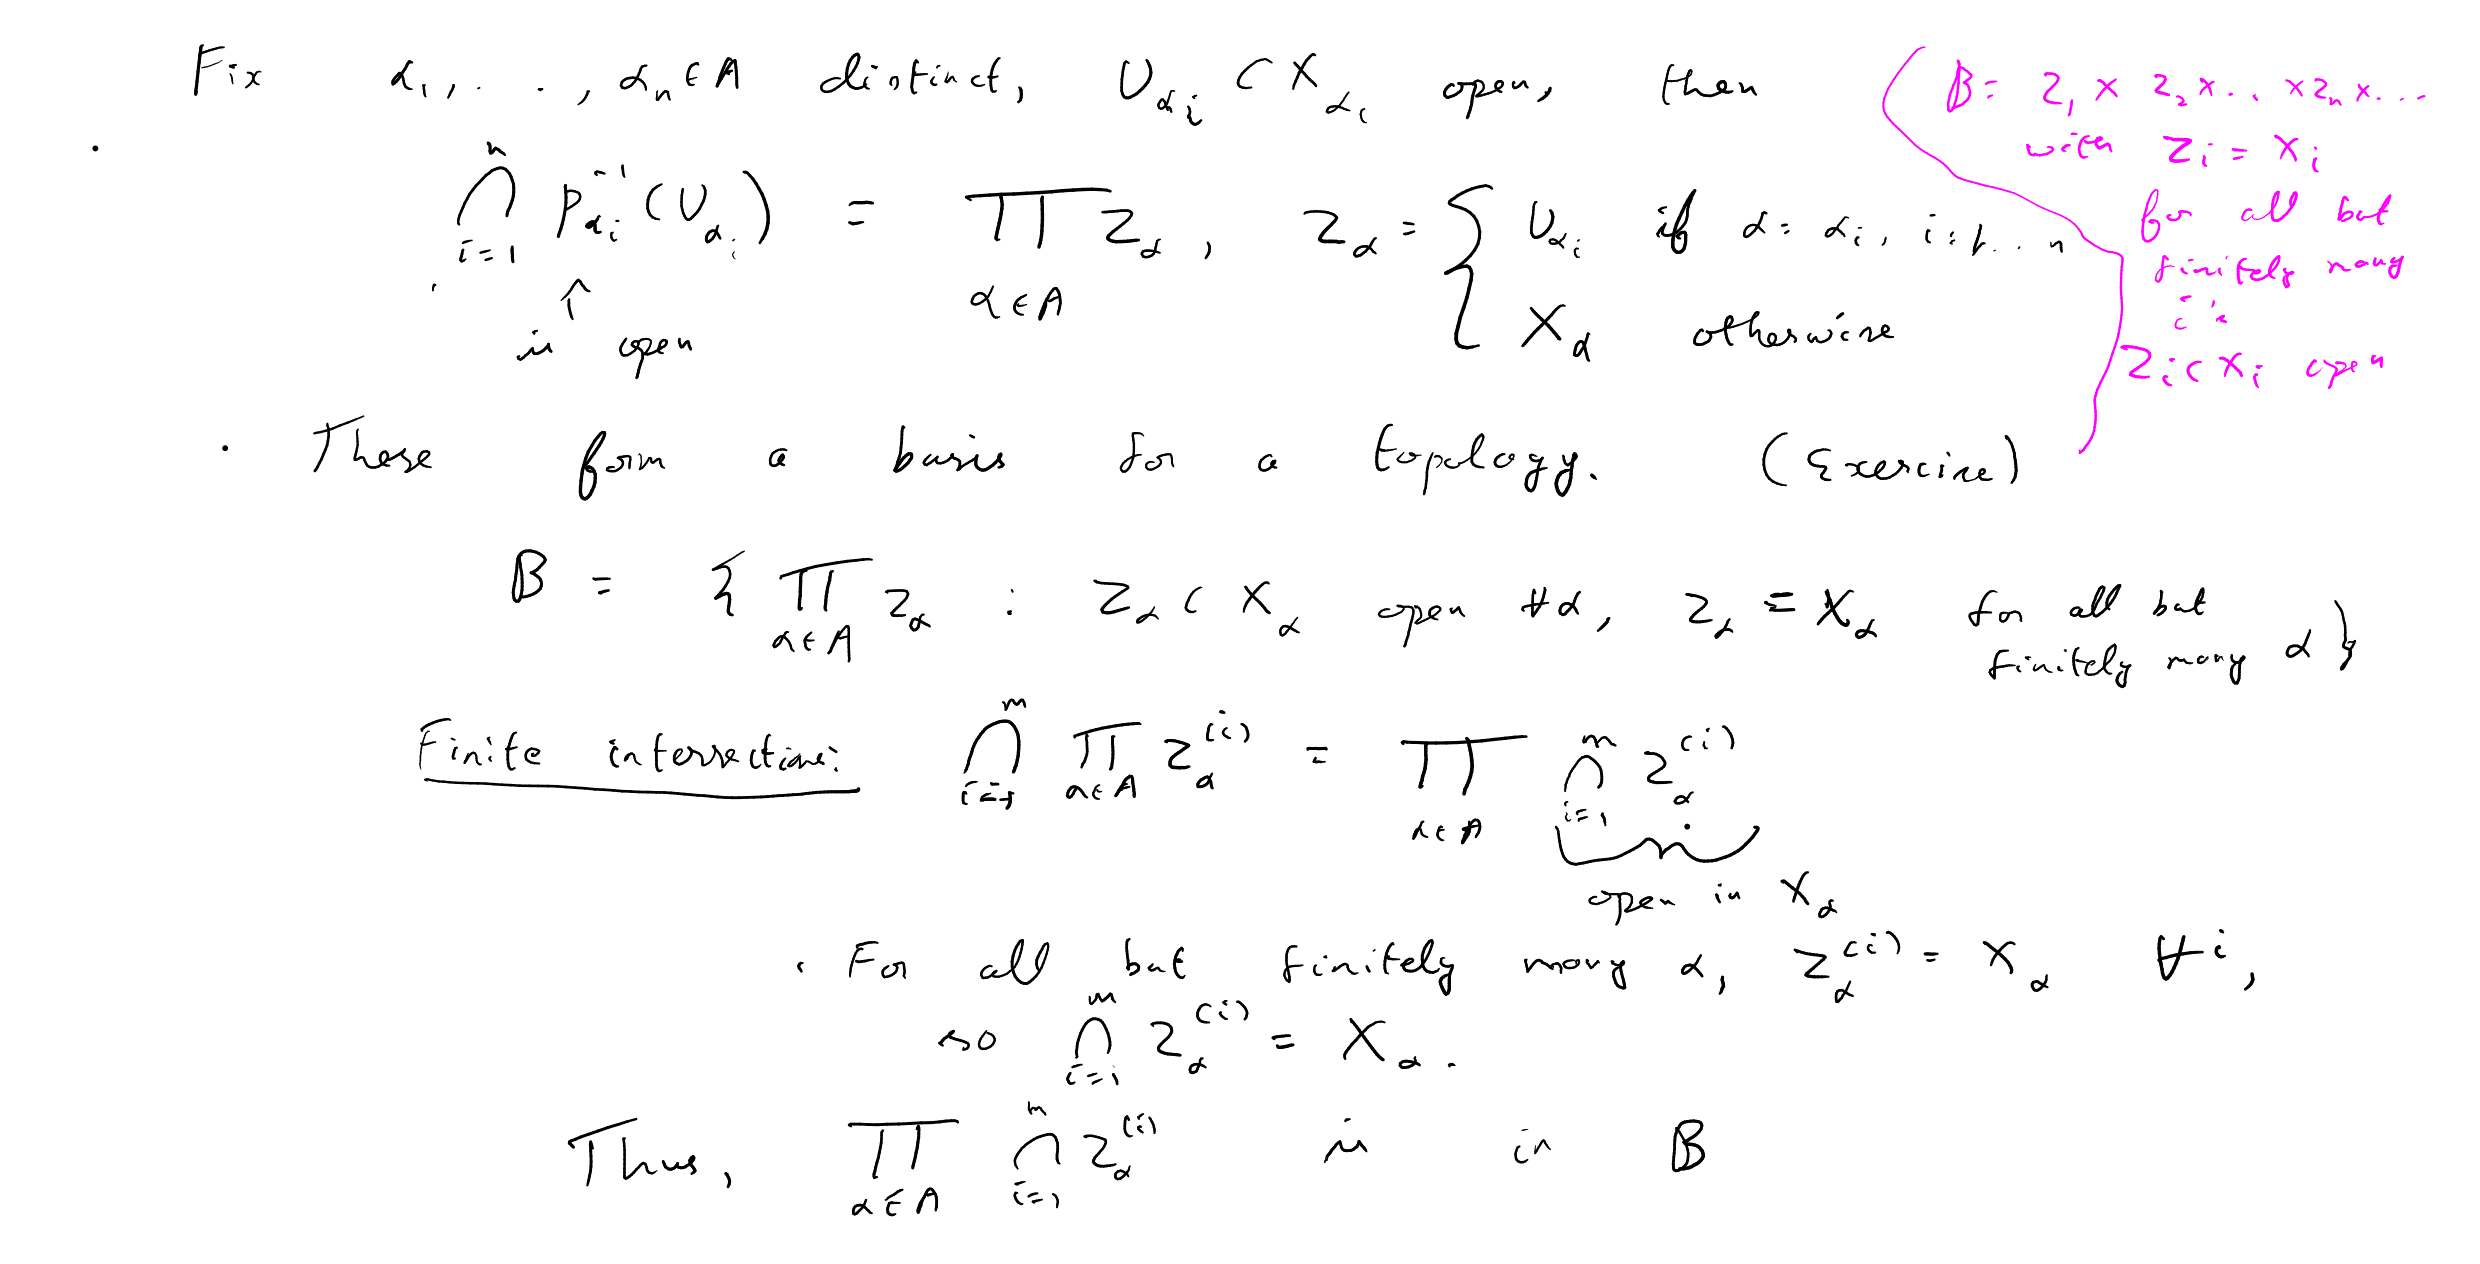 Fix α₁, . . , αₙ ∈ A distinct, U_{αᵢ} ⊂ X_{αᵢ} open, then
⋂_{i=1}^{n} p_{αᵢ}^{-1}(U_{αᵢ}) = ∏_{α∈A} Z_α, Z_α = { U_{αᵢ} if α = αᵢ, i=1...n
X_α otherwise
↑
is open
B = Z₁ × Z₂ × .. × Zₙ × ...
with Zᵢ = Xᵢ
for all but
finitely many
i's
Zᵢ ⊂ Xᵢ open
· These form a basis for a topology. (Exercise)
B = { ∏_{α∈A} Z_α : Z_α ⊂ X_α open ∀α, Z_α = X_α for all but
finitely many α }
Finite intersections: ⋂_{i=1}^{m} ∏_{α∈A} Z_α^{(i)} = ∏_{α∈A} ⋂_{i=1}^{m} Z_α^{(i)}
open in X_α
· For all but finitely many α, Z_α^{(i)} = X_α ∀i,
so ⋂_{i=1}^{m} Z_α^{(i)} = X_α.
Thus, ∏_{α∈A} ⋂_{i=1}^{m} Z_α^{(i)} is in B